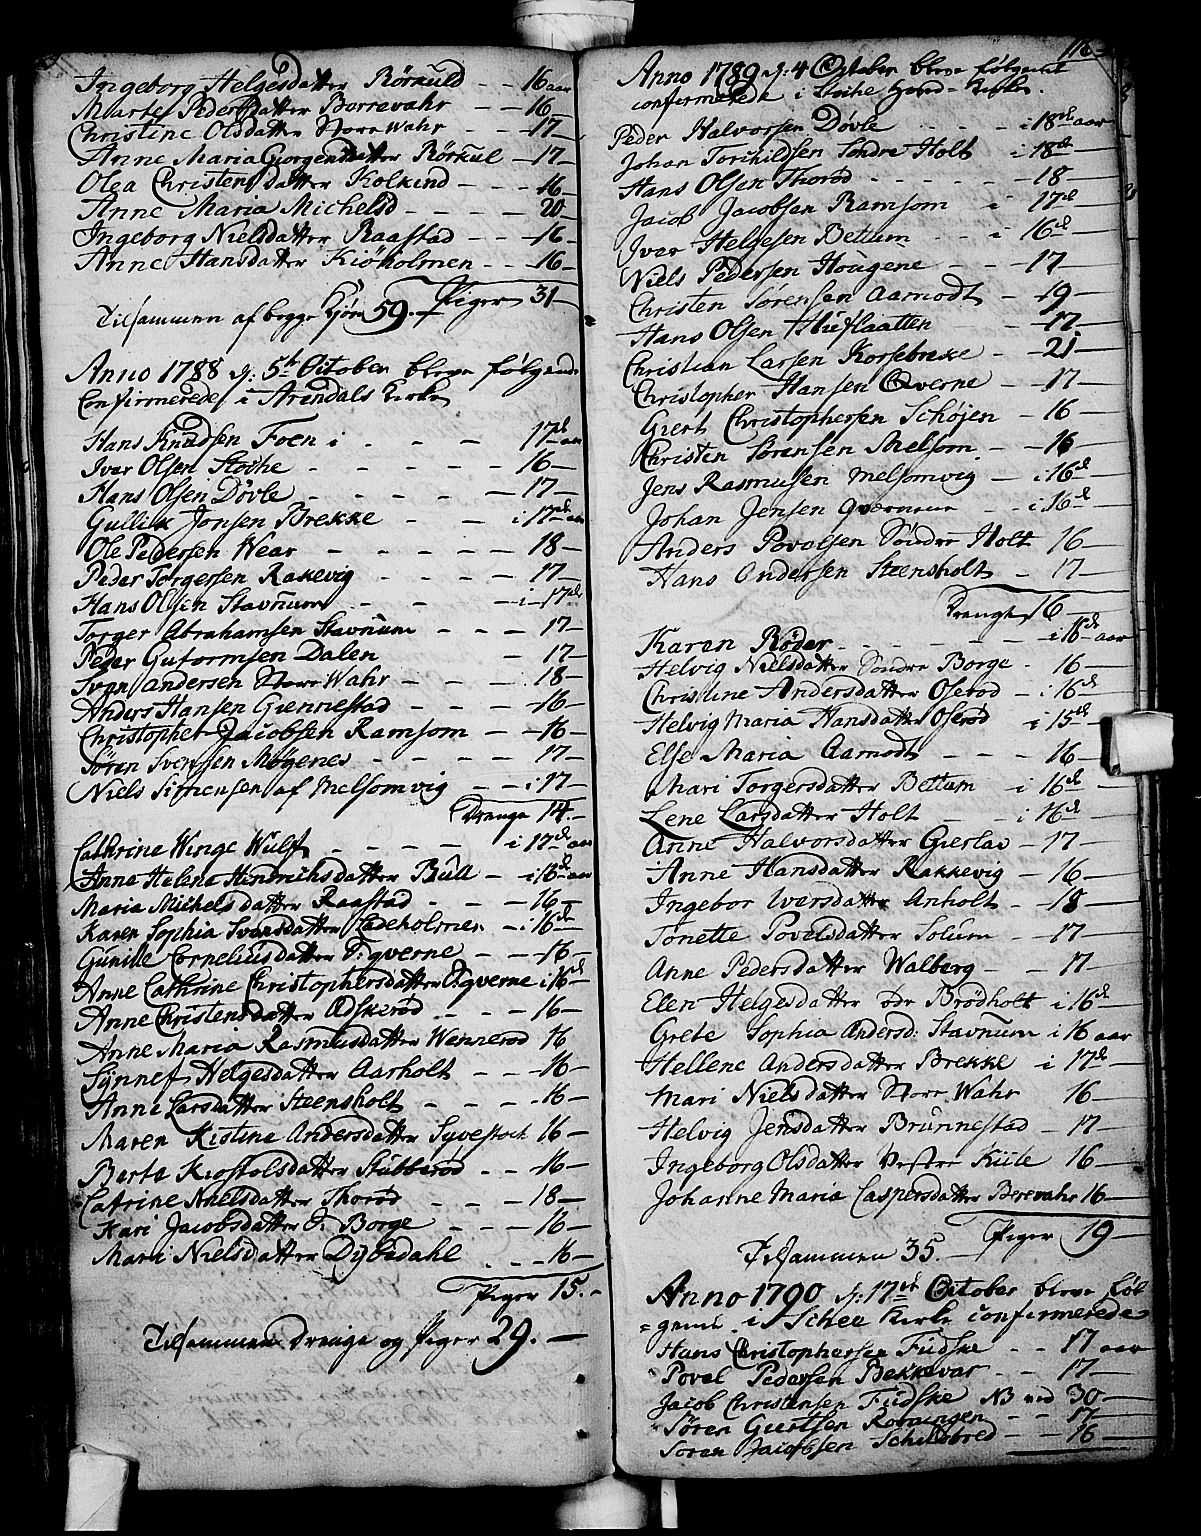 Ingeborg Helgesdatter Rörkuld - - 16 aar
Marte Pedersdatter Borrevahr - 16
Christine Olsdatter Norr Wahr - - - 17
Anne Maria Gorgensdatter Rörkul - 17 -
Olea Christensdatter Kolkind - - - 16
Anne Maria Michelsd - - - - 20
Ingeborg Nielsdatter Raastad - - - 16 -
Anne Hansdatter Kiöholmen - - - 16 -
Piger 31
Tilsammen af begge Kjön 59.
Anno 1788 d: 5t October bleve følgende
Confirmerede i Arendals Kirke
Hans Knudsen Foen i - - - 17de aar
Iver Olsen Stoche - - - - 16 -
Hans Olsen Dövle - - - - 17 -
Gullik Jonsen Brekke - - i 17de aar
Ole Pedersen Wear - - - - - 18 -
Peder Torgersen Rakevig - - - - 17 -
Hans Olsen Stavnum - - - i 17de
Torger Abrahamsen Stavnum - - - 17 -
Peder Gutormsen Dalen - 17 -
Sven Andersen Norr Wahr - - - 18 -
Anders Hansen Giennestad - - - 16 -
Christopher Jacobsen Ramsom - - 16 -
Sören Svensen Mögenes - - - 17 -
Niels Simensen af Melsomvig - - i 17 -
Drenge 14. -
Cathrine Winge Wulf - - - - i 17de aar
Anne Helene Hindrichsdatter Bull - i 18de aar
Maria Michelsdatter Raastad - - - 16 -
Karen Sophia Svensdatter Ladeholmen - i 16de
Gunild Corneliusdatter Qverne - - 16 -
Anne Cathrine Christophersdatter Qverne i 16de
Anne Christensdatter Adskerød - - - 16 -
Anne Maria Rasmusdatter Wennerød 16
Synnef Helgesdatter Aarholt - - - 16 -
Anne Larsdatter Steensholt - - - 16 -
Maren Kistine Andersdatter Syvestoch 16 -
Berte Kiostolsdatter Stubberød - - 16 -
Catrine Nielsdatter Thorød - - - 18 -
Kari Jacobsdatter Borge - - - 16 -
Mari Nielsdatter Dybedahl - - - 16 -
Piger 15. -
Tilsammen Drenge og Piger 29. -
116
Anno 1789 d: 4 October bleve følgende
confirmerede i Stoche Hoved-Kirke.
Peder Halvorsen Dövle - - - - i 18de aar
Johan Torchildsen Söndre Holt - i 18de
Hans Olsen Thorød - - - - - 18
Jacob Jacobsen Ramsom i 17de
Iver Helgesen Bettum - - i 16de
Niels Pedersen Hougene - - 17 -
Christen Sørensen Aamodt - 19 -
Hans Olsen Huflaatten - - 17 -
Christian Larsen Korsebrexe - 21 -
Christopher Hansen Qverne - - 17 -
Giert Christophersen Schöjen - 16 -
Christen Sørensen Melsom - - 16 -
Jens Rasmussen Melsomvig - i 16de
Johan Jensen - - i 16de
Anders Povelsen Söndre Holt 16 -
Hans Andersen Steensholt - 17 -
Drenge 16
Karen Röder - - - - i 18de aar
Helvig Nielsdatter Söndre Borge - 16 -
Christine Andersdatter Oserød - i 16de
Helvig Maria Hansdatter Oserød i 15de
Else Maria Aamodt - - - 16 -
Mari Torgersdatter Bettum i 16de
Lene Larsdatter Holt - - i 16de
Anne Halvorsdatter Gierlav - 17 -
Anne Hansdatter Rakkevig - 16 -
Ingebor Iversdatter Anholt - 18 -
Tonette Povelsdatter Solum - 17 -
Anne Pedersdatter Walberg - - 17 -
Elen Helgesdatter Brödholt i 16de
Grete Sophia Andersd: Stavnum i 16 aar
Hellene Andersdatter Brekke - i 17de
Mari Nielsdatter Norr Wahr 16 -
Helvig Jensdatter Brunnestad - 17 -
Ingeborg Olsdatter Vestre Kiile 16 -
Johanne Maria Caspersdatter Berevahr 16 -
Piger 19 -
Tilsammen 35. -
Anno 1790 d: 17de October bleve føl
=gende i Schee Kirke confirmerede
Hans Christophersen Fudske - - 17 aar
Povel Pedersen Bekkevar - - 17 -
Jacob Christensen Fudske NB ved 30 -
Søren Giertsen Rovningen - - 17 -
Soren Jacobsen Schildbred - - 16 -